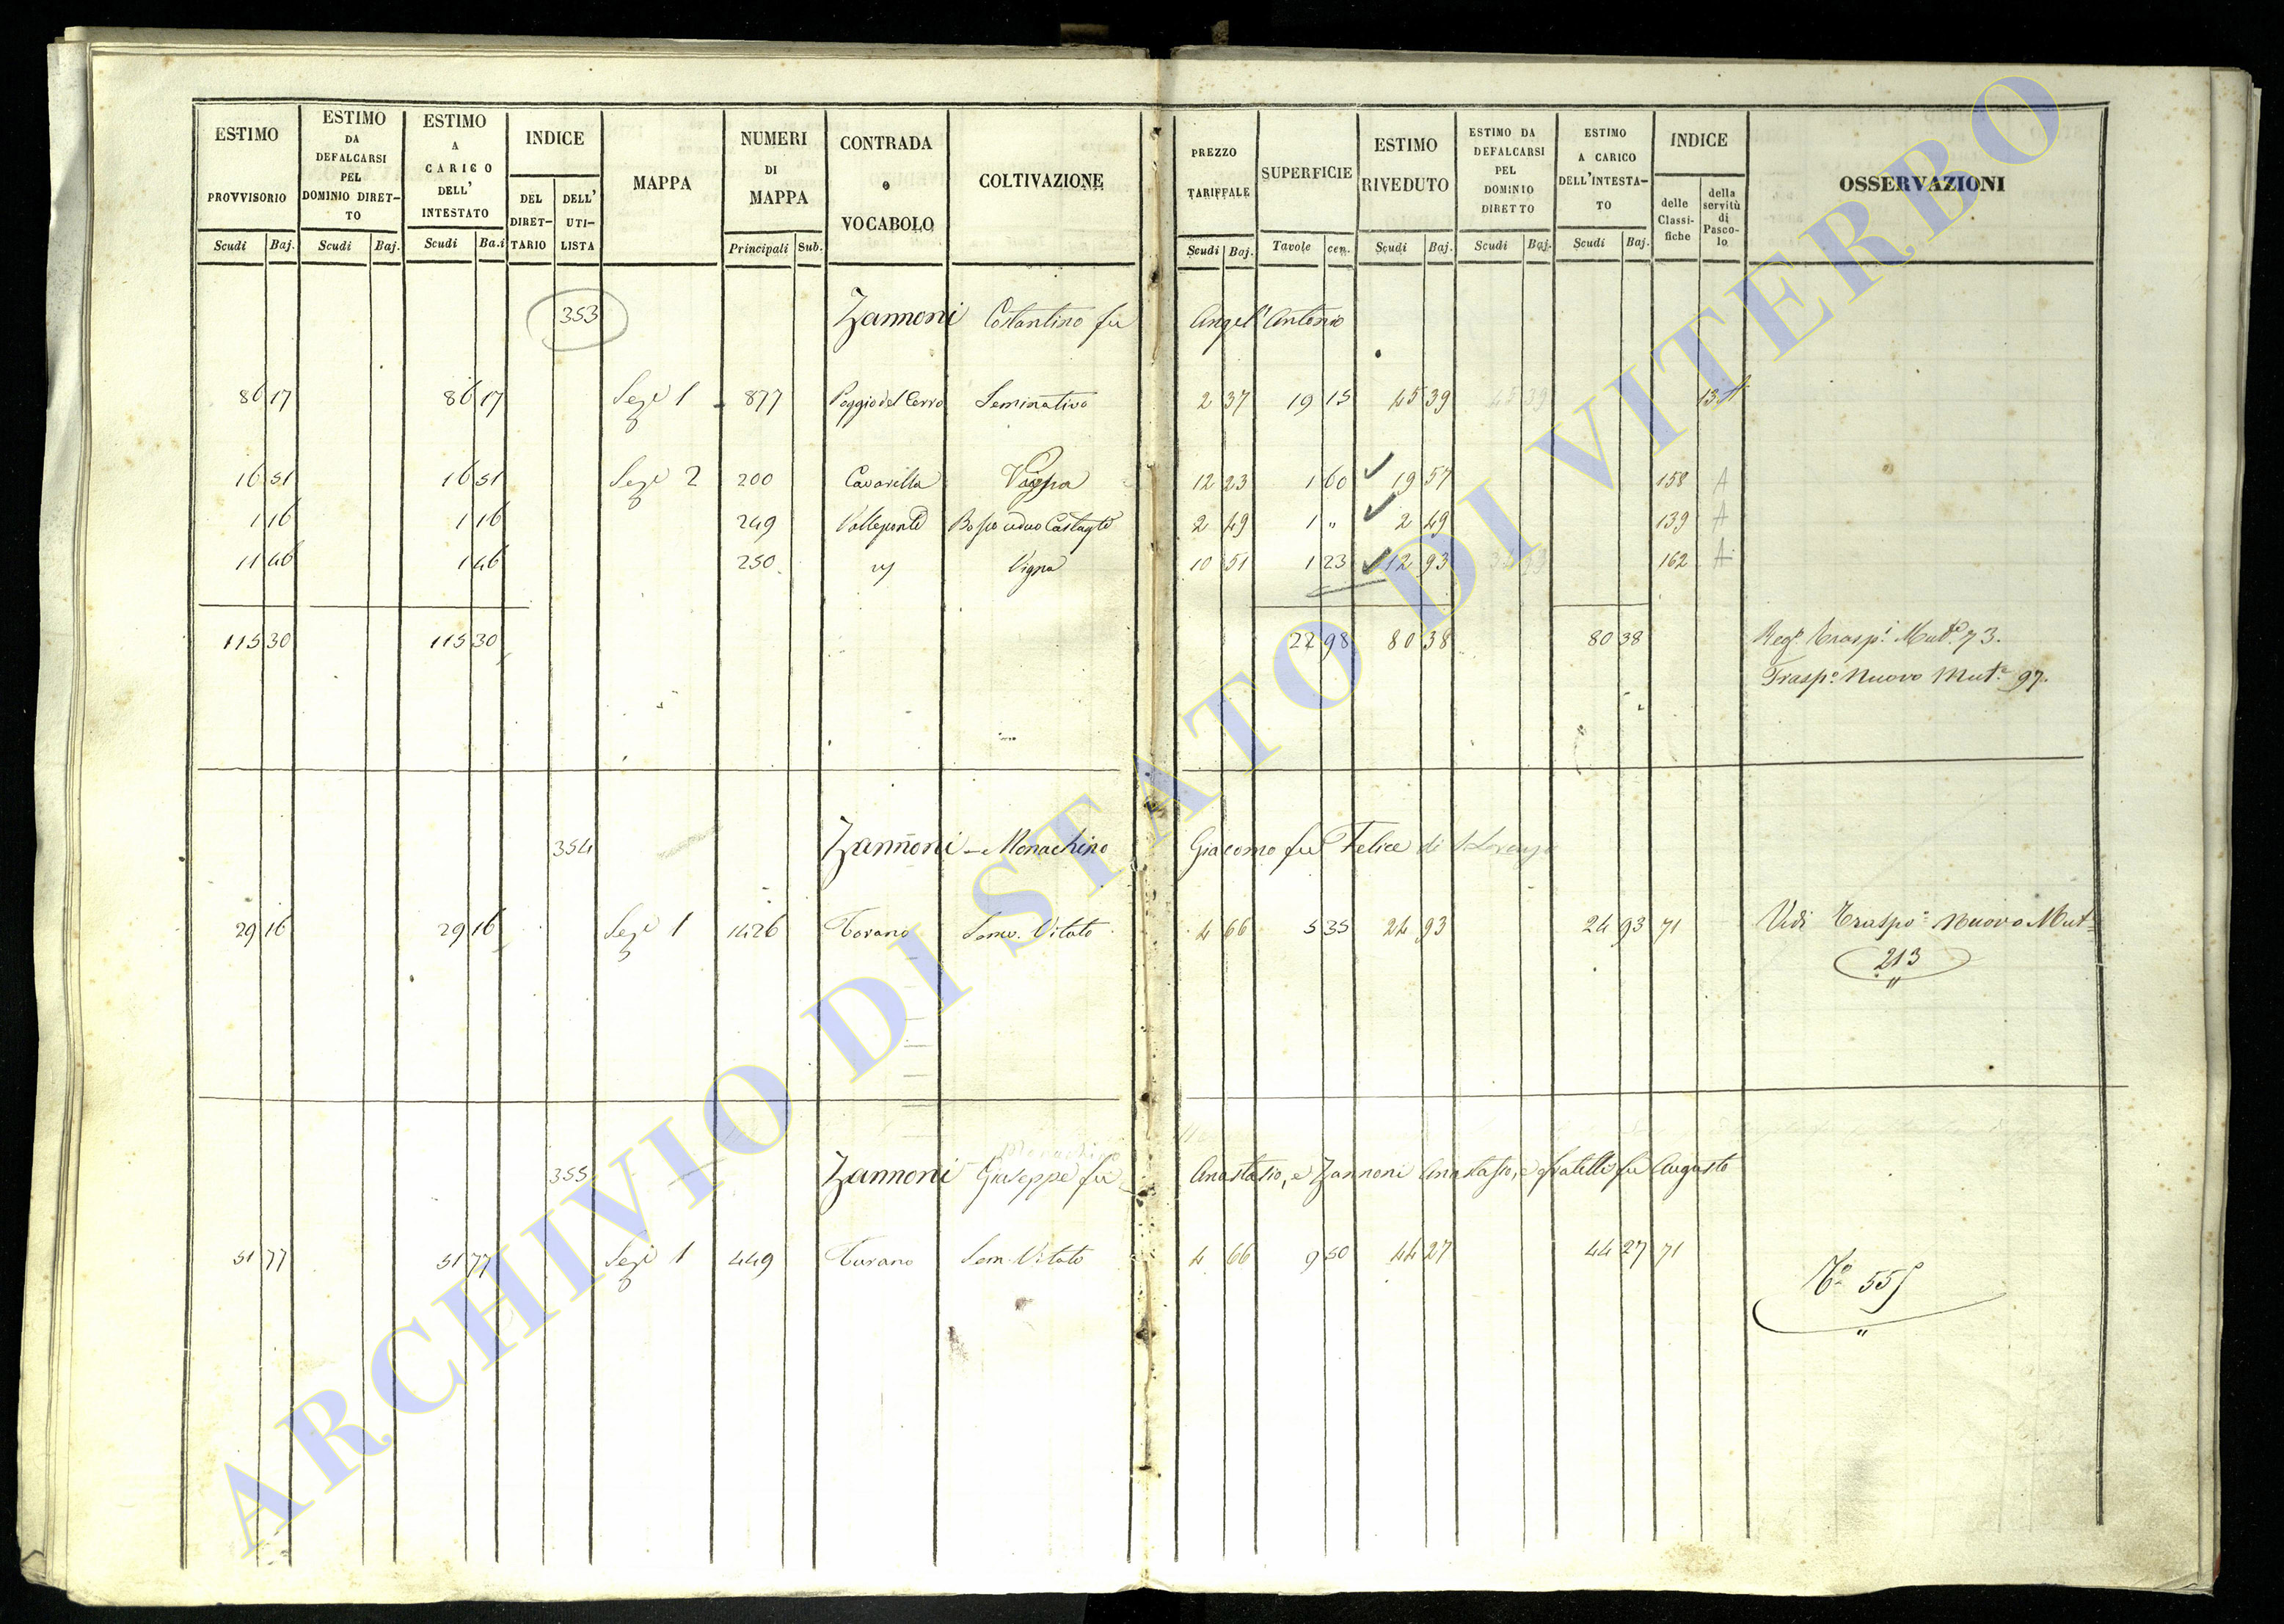 ESTIMO PROVVISORIO Scudi Baj.
ESTIMO DA DEFALCARSI PEL DOMINIO DIRET-TO Scudi Baj.
ESTIMO A CARICO DELL' INTESTATO Scudi Ba.i
INDICE DEL DIRET-TARIO DELL' UTI-LISTA
MAPPA
NUMERI DI MAPPA Principali Sub.
CONTRADA o VOCABOLO
COLTIVAZIONE
PREZZO TARIFFALE Scudi Baj.
SUPERFICIE Tavole cen.
ESTIMO RIVEDUTO Scudi Baj.
ESTIMO DA DEFALCARSI PEL DOMINIO DIRETTO Scudi Baj.
ESTIMO A CARICO DELL'INTESTA-TO Scudi Baj.
INDICE delle Classi-fiche della servitù di Pasco-lo
OSSERVAZIONI
353 Zannoni Costantino fu Angel' Antonio
86 17 86 17 Sezе 1 877 Poggio del Cerro Seminativo 2 37 19 15 45 39 45 39
16 51 16 51 Seze 2 200 Cavarella Vigna 12 23 1 60 19 57 158 A
1 16 1 16 249 Valleponte Bosco ceduo Castagte 2 49 1 " 2 49 139 A
11 46 1 46 250 Vigna 10 51 1 23 12 93 162 A
115 30 115 30 22 98 80 38 80 38 Rege Trasp.i Mute. 73.
Traspo Nuovo Mut.e 97.
354 Zannoni - Monachino Giacomo fu Felice di S. Lorenzo
29 16 29 16 Seze 1 1426 Torano Semo. Vitato 4 66 5 35 24 93 24 93 71 Vedi Traspo Nuovo Mut=
213
Monachino
355 Zannoni Giuseppe fu Anastasio, e Zannoni Anastasio, e fratelli fu Augusto
51 77 51 77 Seze 1 449 Turano Sem. Vitato 4 66 9 50 44 27 44 27 71
No 555
ARCHIVIO DI STATO DI VITERBO